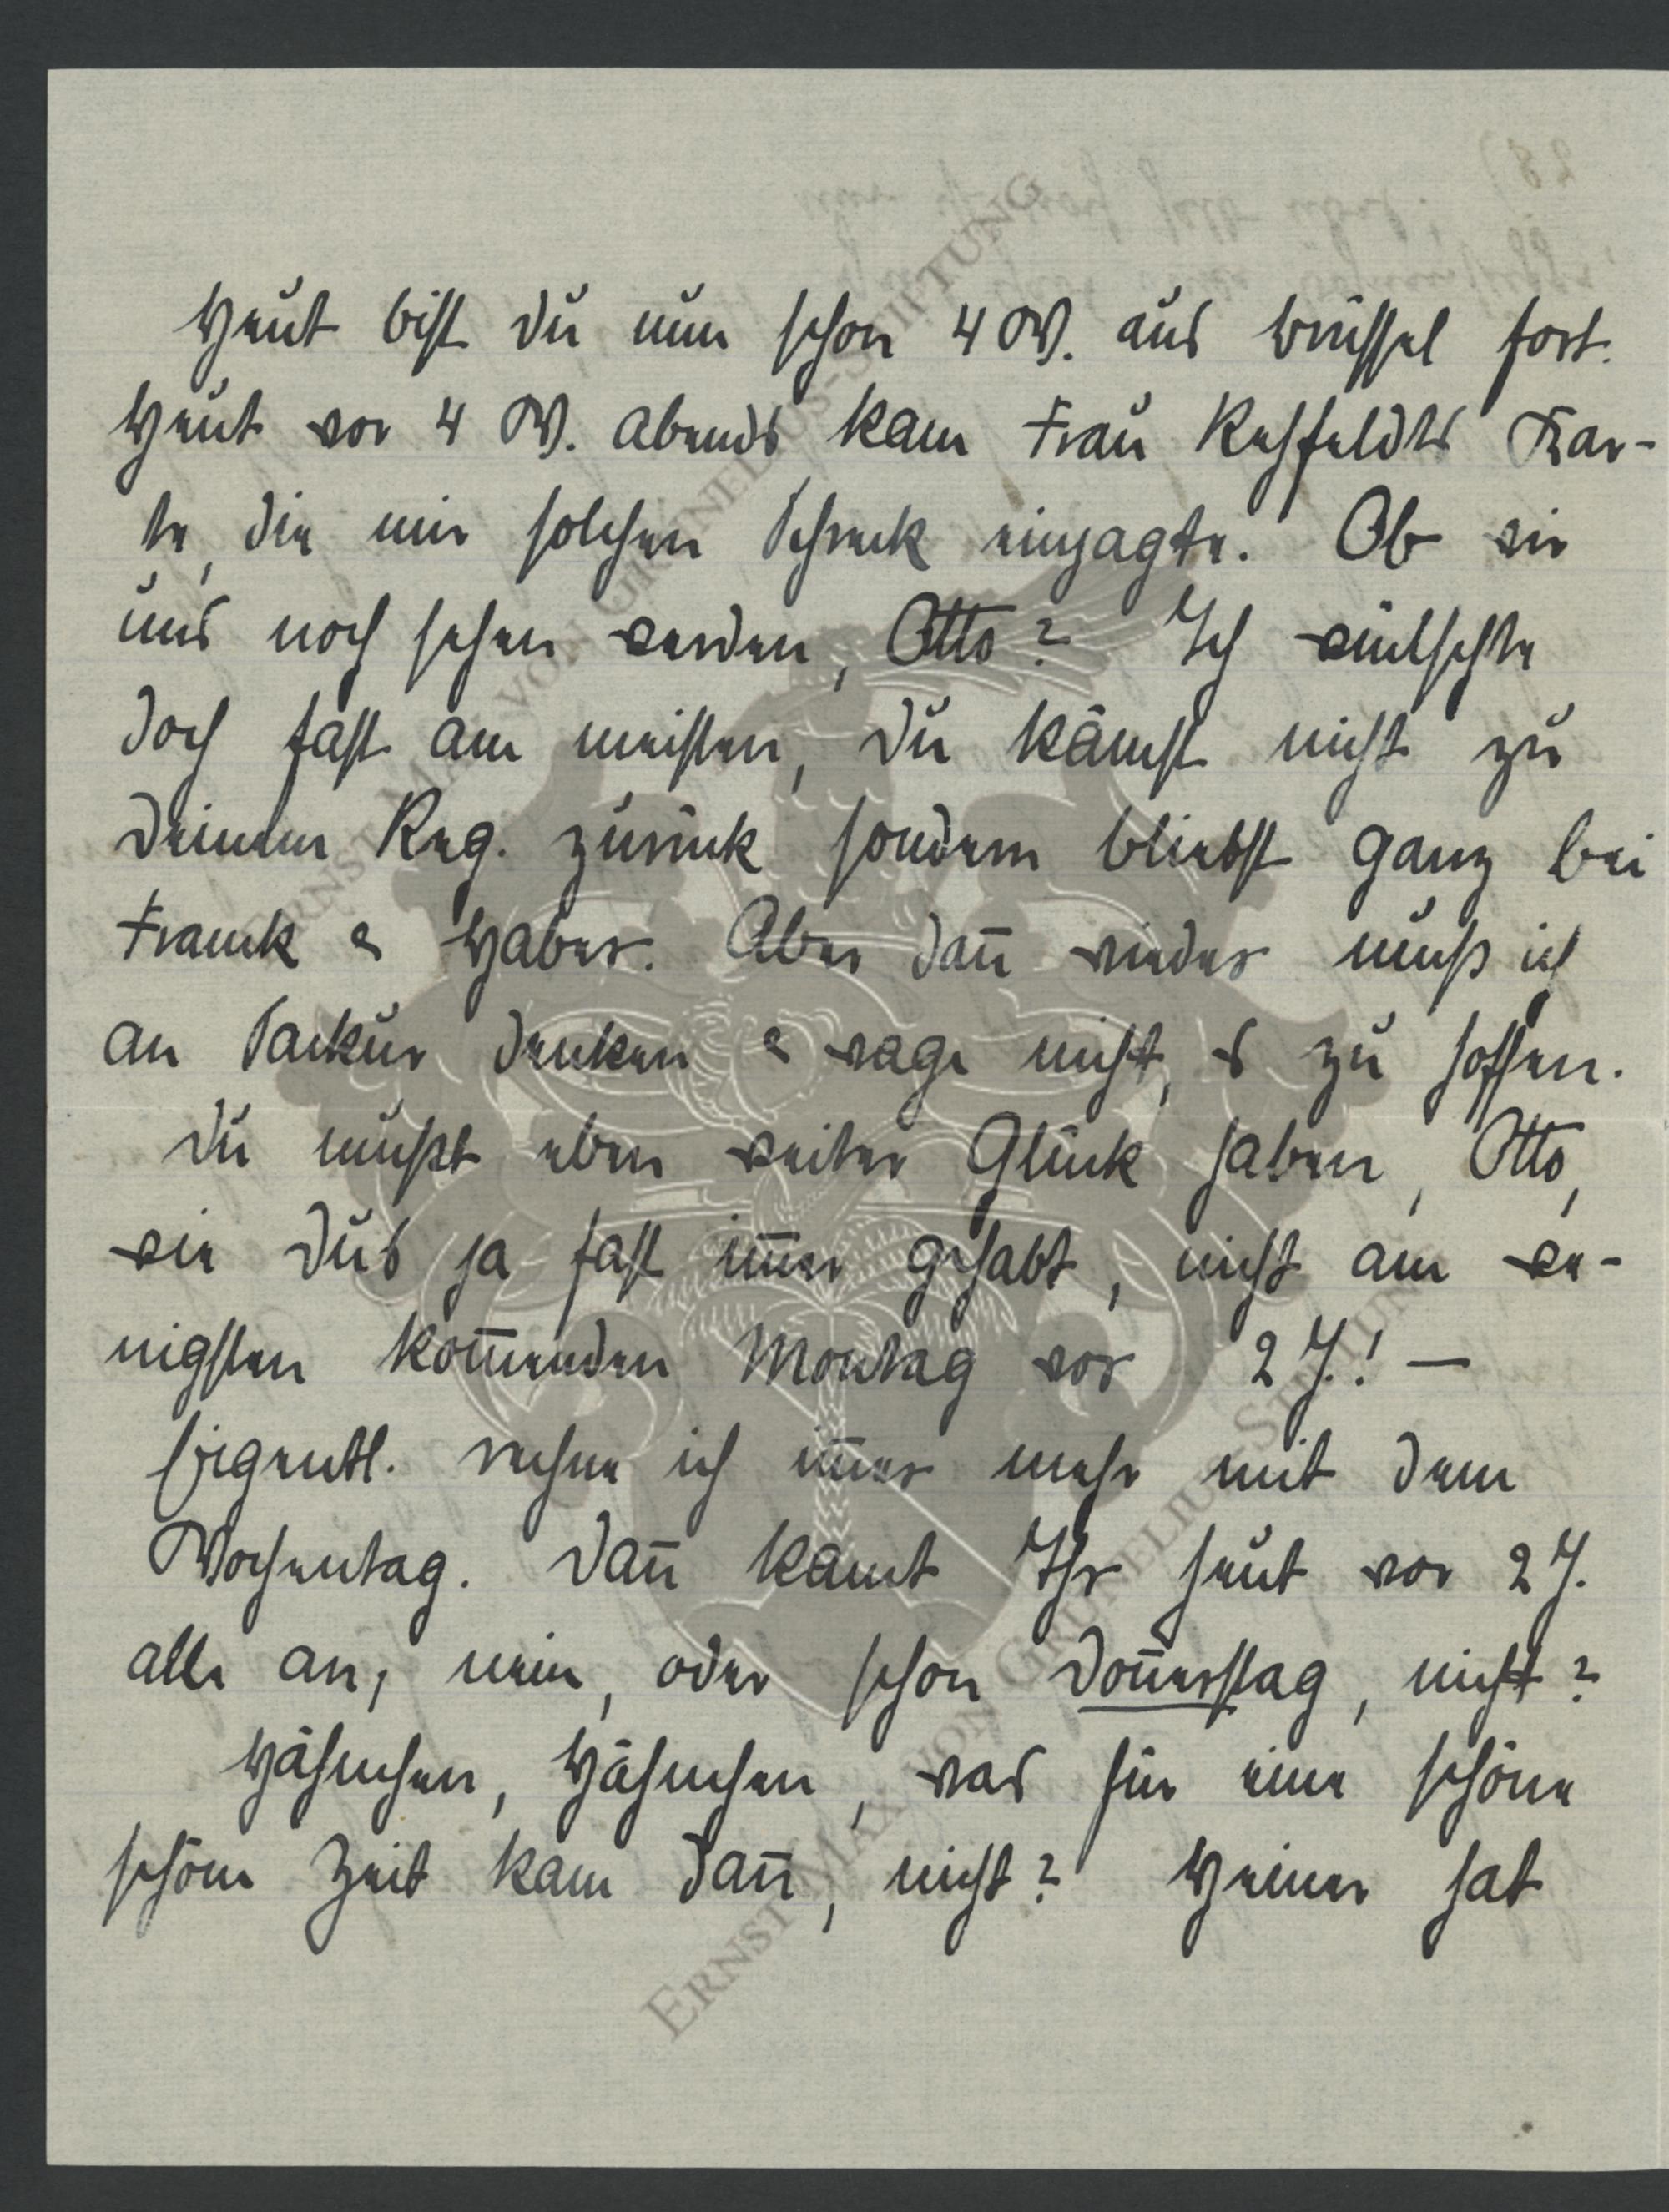 Heut bist Du nun schon 4 W. aus Brüssel fort.
Heut vor 4 W. abends kam Frau Rehfeldts Kar-
te, die mir solchen Schreck einjagte. Ob wir
uns noch sehen werden, Otto? Ich wünschte
doch fast am meisten, Du kämst nicht zu
Deinem Reg. zurück sondern bliebst ganz bei
Franck & Haber. Aber dan̄ wieder muß ich
an Sackur denken & wage nicht, es zu hoffen.
Du mußt eben weiter Glück haben, Otto,
wie Du's ja fast im̄er gehabt, nicht am we-
nigsten kom̄enden Montag vor 2 J.! —
Eigentl. rechne ich im̄er mehr mit dem
Wochentag. Dan̄ kamt Ihr heut vor 2 J.
alle an, nein, oder schon Don̄erstag, nicht?
Hähnchen, Hähnchen, was für eine schöne
schöne Zeit kam dan̄, nicht? Heiner hat
ERNST MAX VON GRUNELIUS-STIFTUNG
ERNST MAX VON GRUNELIUS-STIFTUNG